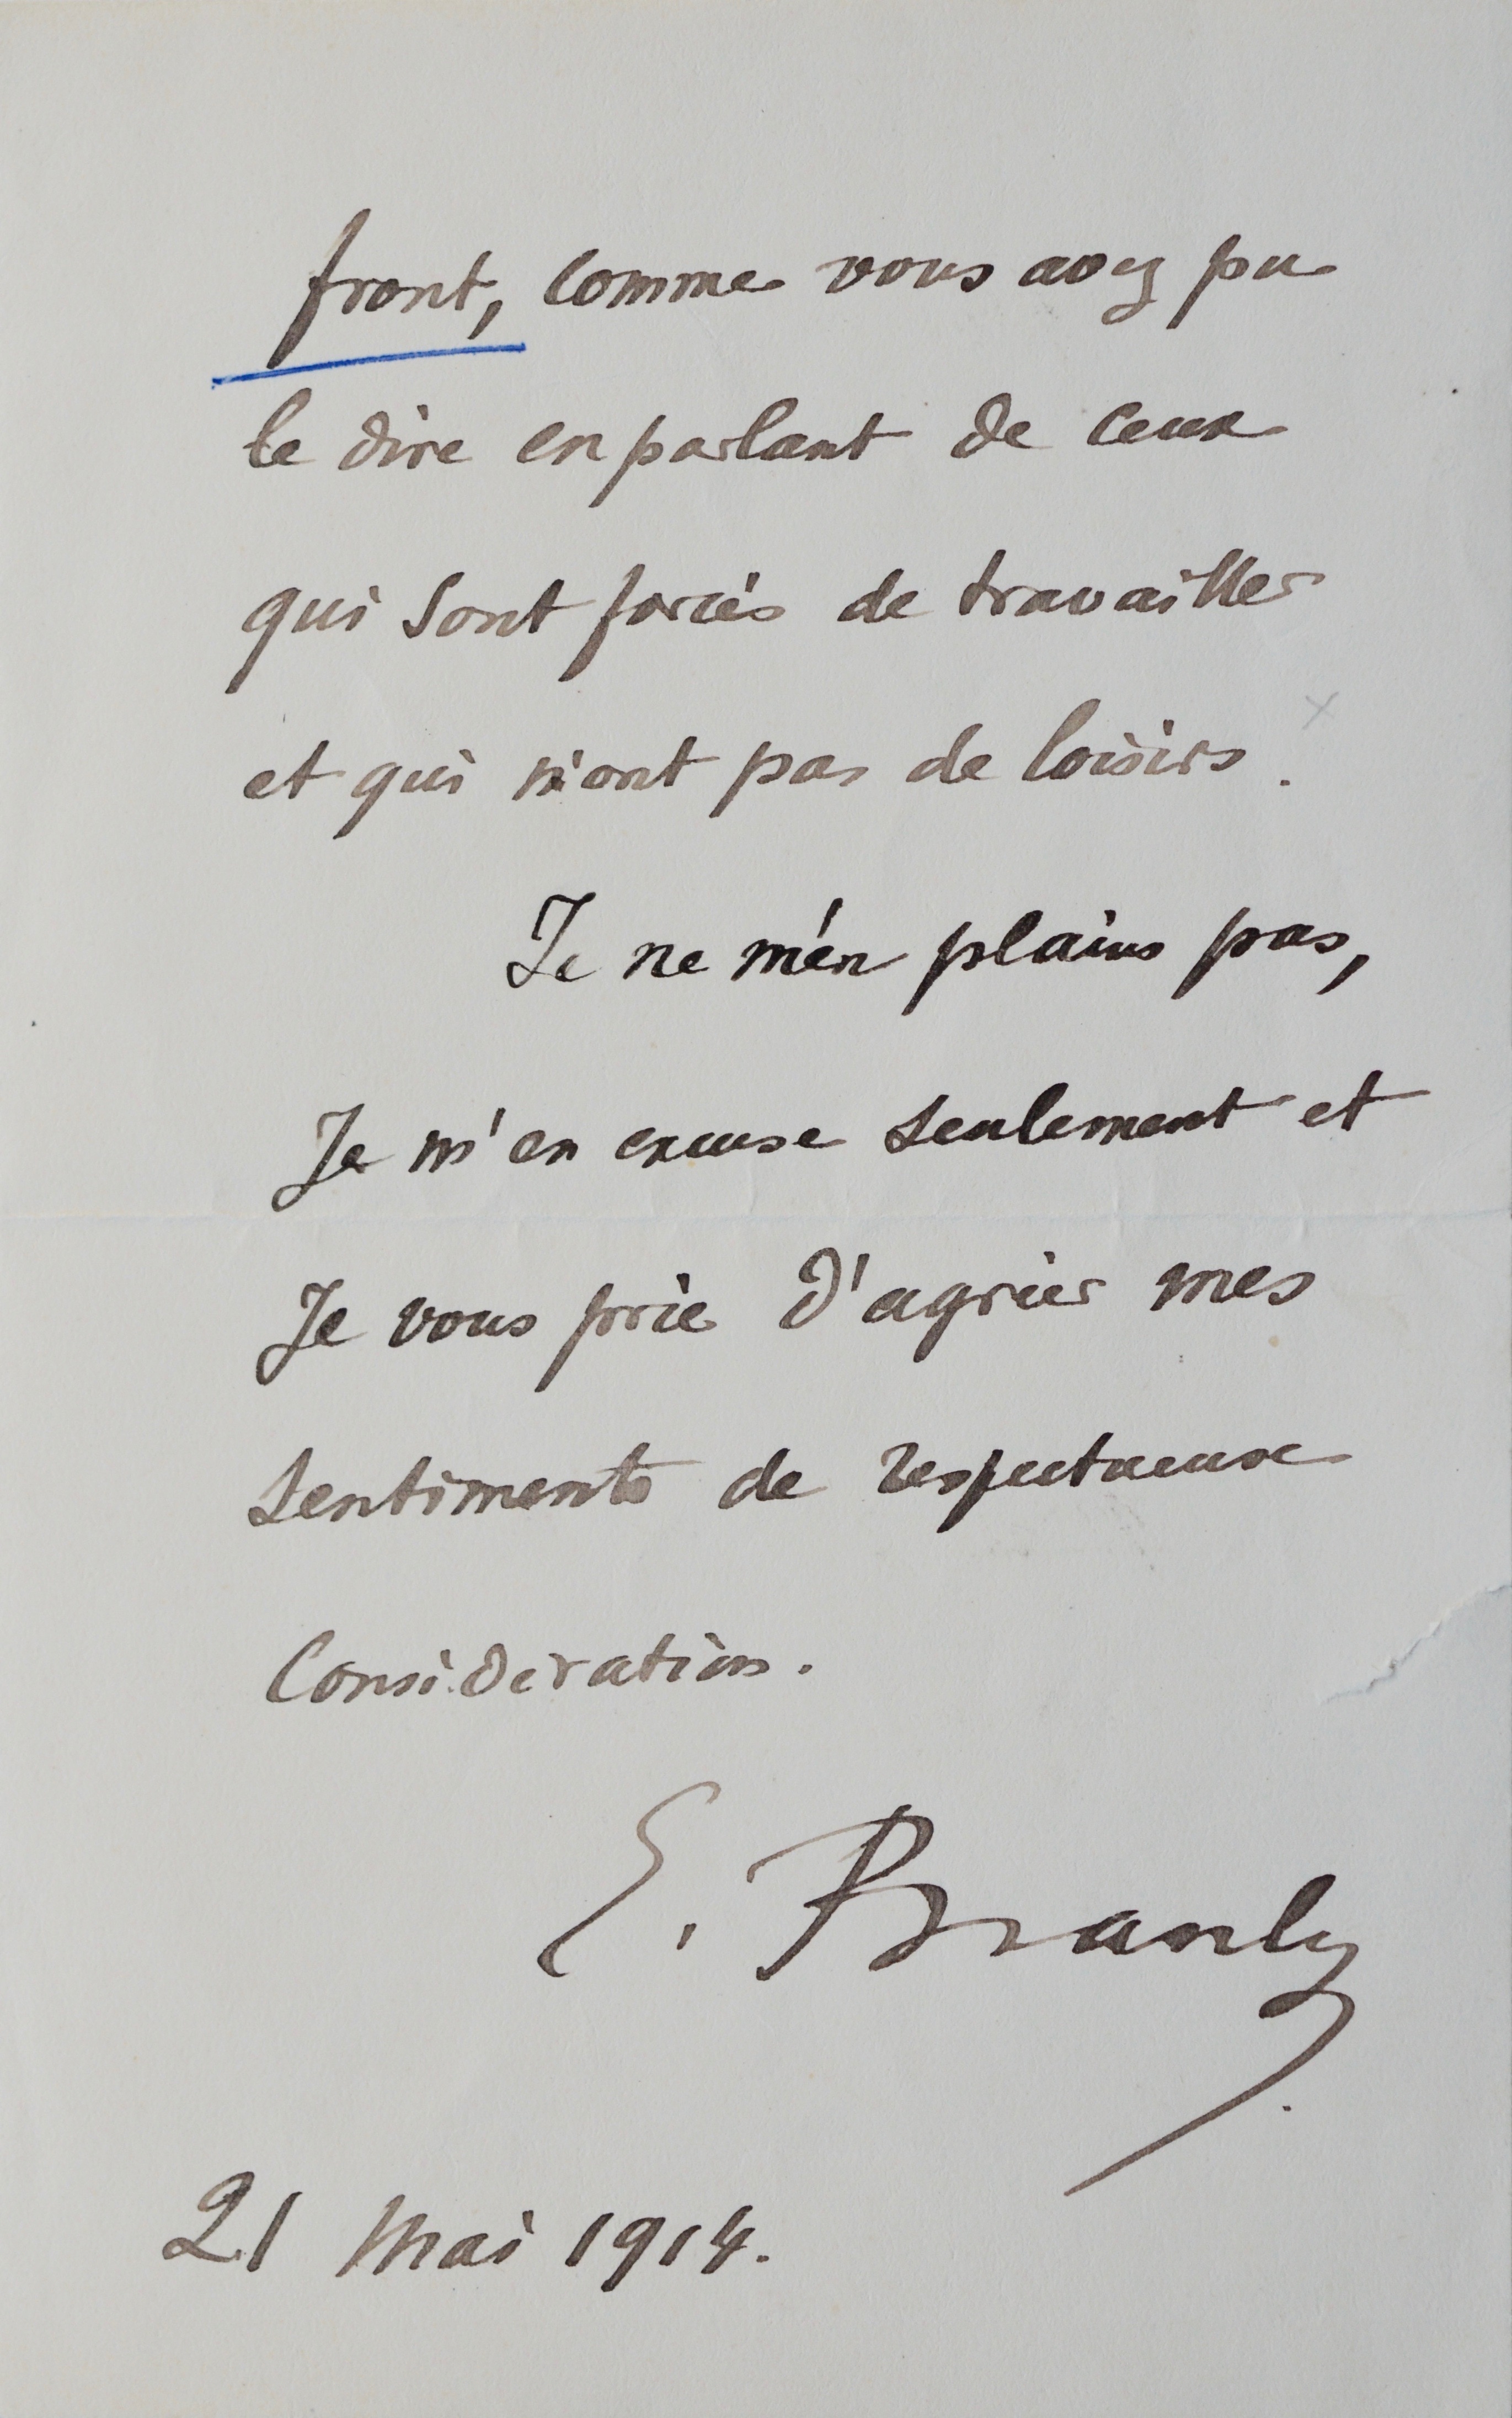 front, comme vous avez pu
le dire en parlant de ceux
qui sont forcés de travailler
et qui n'ont pas de loisirs.
Je ne m'en plains pas,
Je m'en excuse seulement et
Je vous prie d'agréer mes
sentiments de respectueuse
Consideration.
E. Branly
21 Mai 1914.